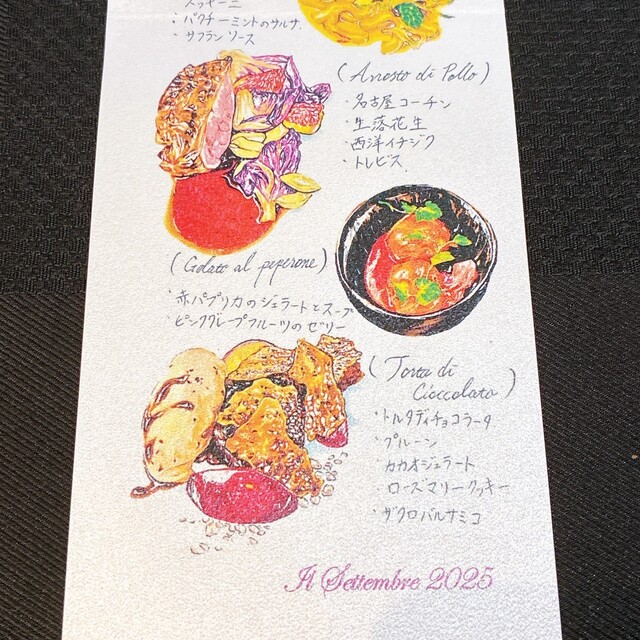 ズッキーニ
・パクチーミントのサルサ
・サフランソース
(Arrosto di Pollo)
・名古屋コーチン
・生落花生
・西洋イチジク
・トレビス
(Gelato al peperone)
・赤パプリカのジェラートとスープ
・ピンクグレープフルーツのゼリー
(Torta di
Cioccolato)
・トルタディチョコラータ
・プルーン
・カカオジェラート
・ローズマリークッキー
・ザクロバルサミコ
Il Settembre 2025